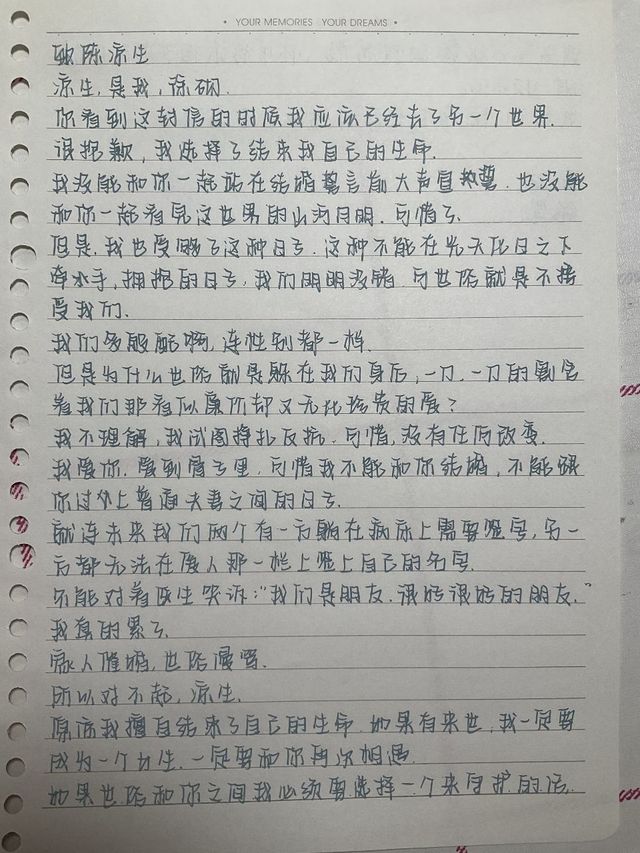 • YOUR MEMORIES YOUR DREAMS •
致陈凉生
凉生,是我,徐砌.
你看到这封信的时候我应该已经去了另一个世界.
很抱歉,我选择了结束我自己的生命.
我没能和你一起站在结婚誓言前大声宣热誓.也没能
和你一起看见这世界的山河月明.可惜了.
但是.我也受够了这种日子.这种不能在光天化日之下
牵小手,拥抱的日子,我们明明没错.可世俗就是不接
受我们.
我们多般配啊,连性别都一样.
但是为什么世俗就是躲在我们身后,一刀.一刀的割舍
着我们那看似廉价却又无比珍贵的爱?
我不理解,我试图挣扎反抗.可惜,没有任何改变.
我爱你.爱到骨子里.可惜我不能和你结婚,不能跟
你过不上普通夫妻之间的日子.
就连未来我们两个有一方躺在病床上需要签字,另一
方都无法在家人那一栏上签上自己的名字.
只能对着医生哭诉:"我们是朋友.很好很好的朋友."
我真的累了.
家人催婚,世俗谩骂.
所以对不起,凉生.
原谅我擅自结束了自己的生命.如果有来世,我一定要
成为一个女生.一定要和你再次相遇.
如果世俗和你之间我必须要选择一个来守护的话.